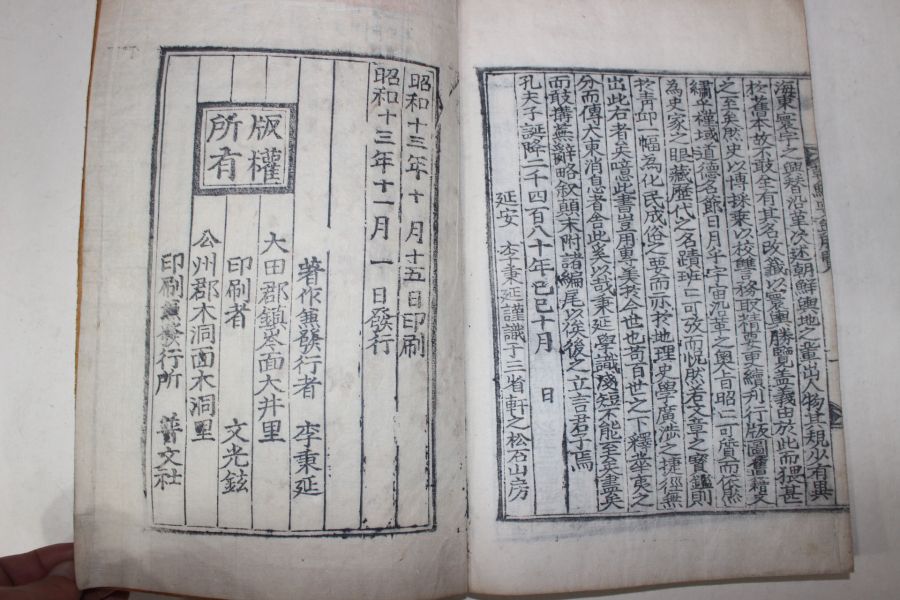 海東寰宇之興替沿革次述朝鮮輿地之彙出人物其規少有異
於舊本故不敢全有其名改義以寰輿勝覽盖義由於此而猥甚
之至矣然史以博採乘以校讐務取精要重續刊行版圖舊
繡乎槿域道德名節日月乎宇宙沿革之奧昔昭二可質而依然
為史家之眼藏歷代之名蹟班二可攷而怳然若文章之寶鑑則
於靑邱一幅為化民成俗之要而亦於地理史學廣涉之捷徑無
出此右者至噫此書豈用專美於今世也者百世之下釋華夷之
分而傳大東消息者舍此奚以哉秉延學識淺短不能至矣盡矣
而敢搆蕪辭略叙顚末附諸編尾以俟後之立言君子焉
孔夫子誕降二千四百八十年己巳十月 日
延安 李秉延謹識于三省軒之松石山房
昭和十三年十月十五日印刷
昭和十三年十一月一日發行
版權
所有
著作兼發行者 李秉延
大田郡鎮岑面大井里
印刷者 文光鉉
公州郡木洞面木洞里
印刷兼發行所 普文社